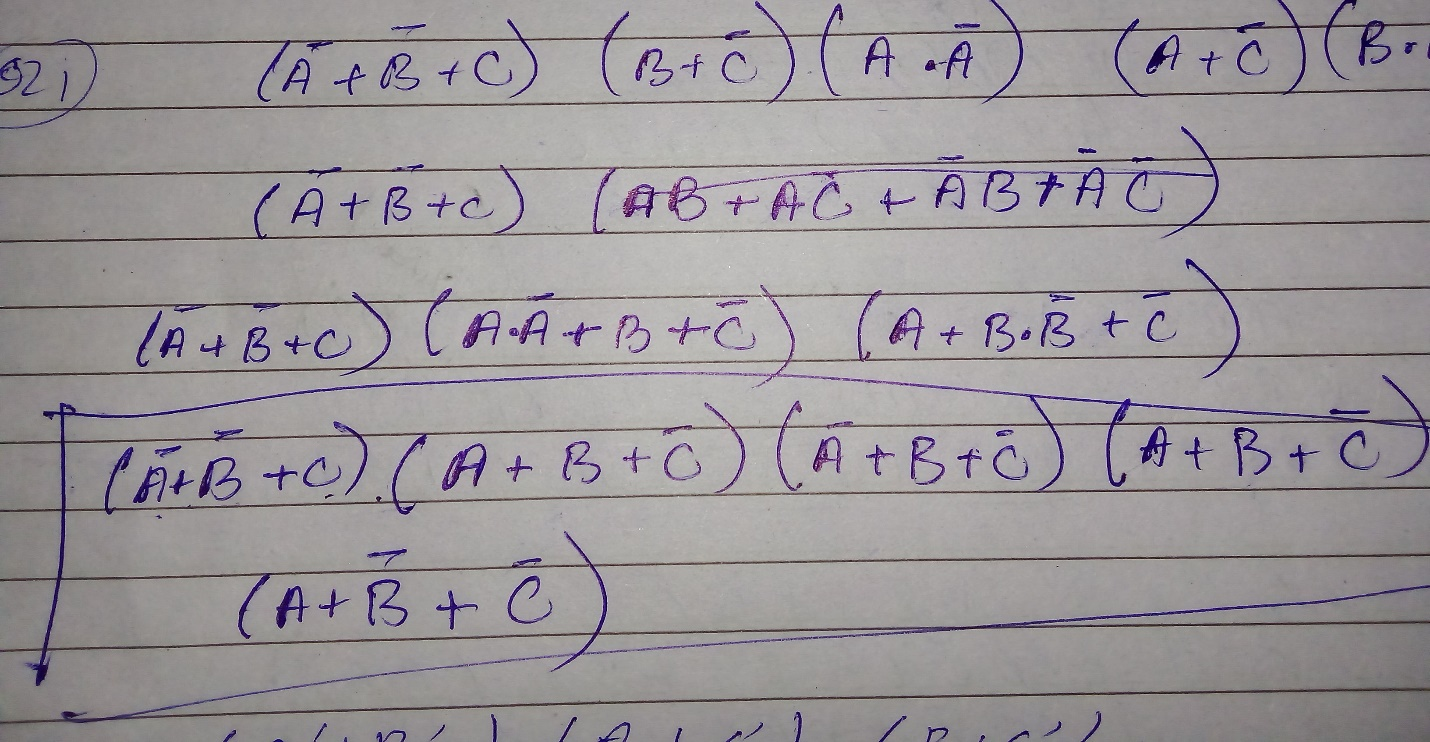 92i) (Ā + B̄ + C) (B + C̄) (A . Ā) (A + C̄) (B .
(Ā + B̄ + C) (AB + AC̄ + ĀB + ĀC̄)
(Ā + B̄ + C) (A.Ā + B + C̄) (A + B.B̄ + C̄)
(Ā + B̄ + C) . (A + B + C̄) (Ā + B + C̄) (A + B + C̄)
(A + B̄ + C̄)